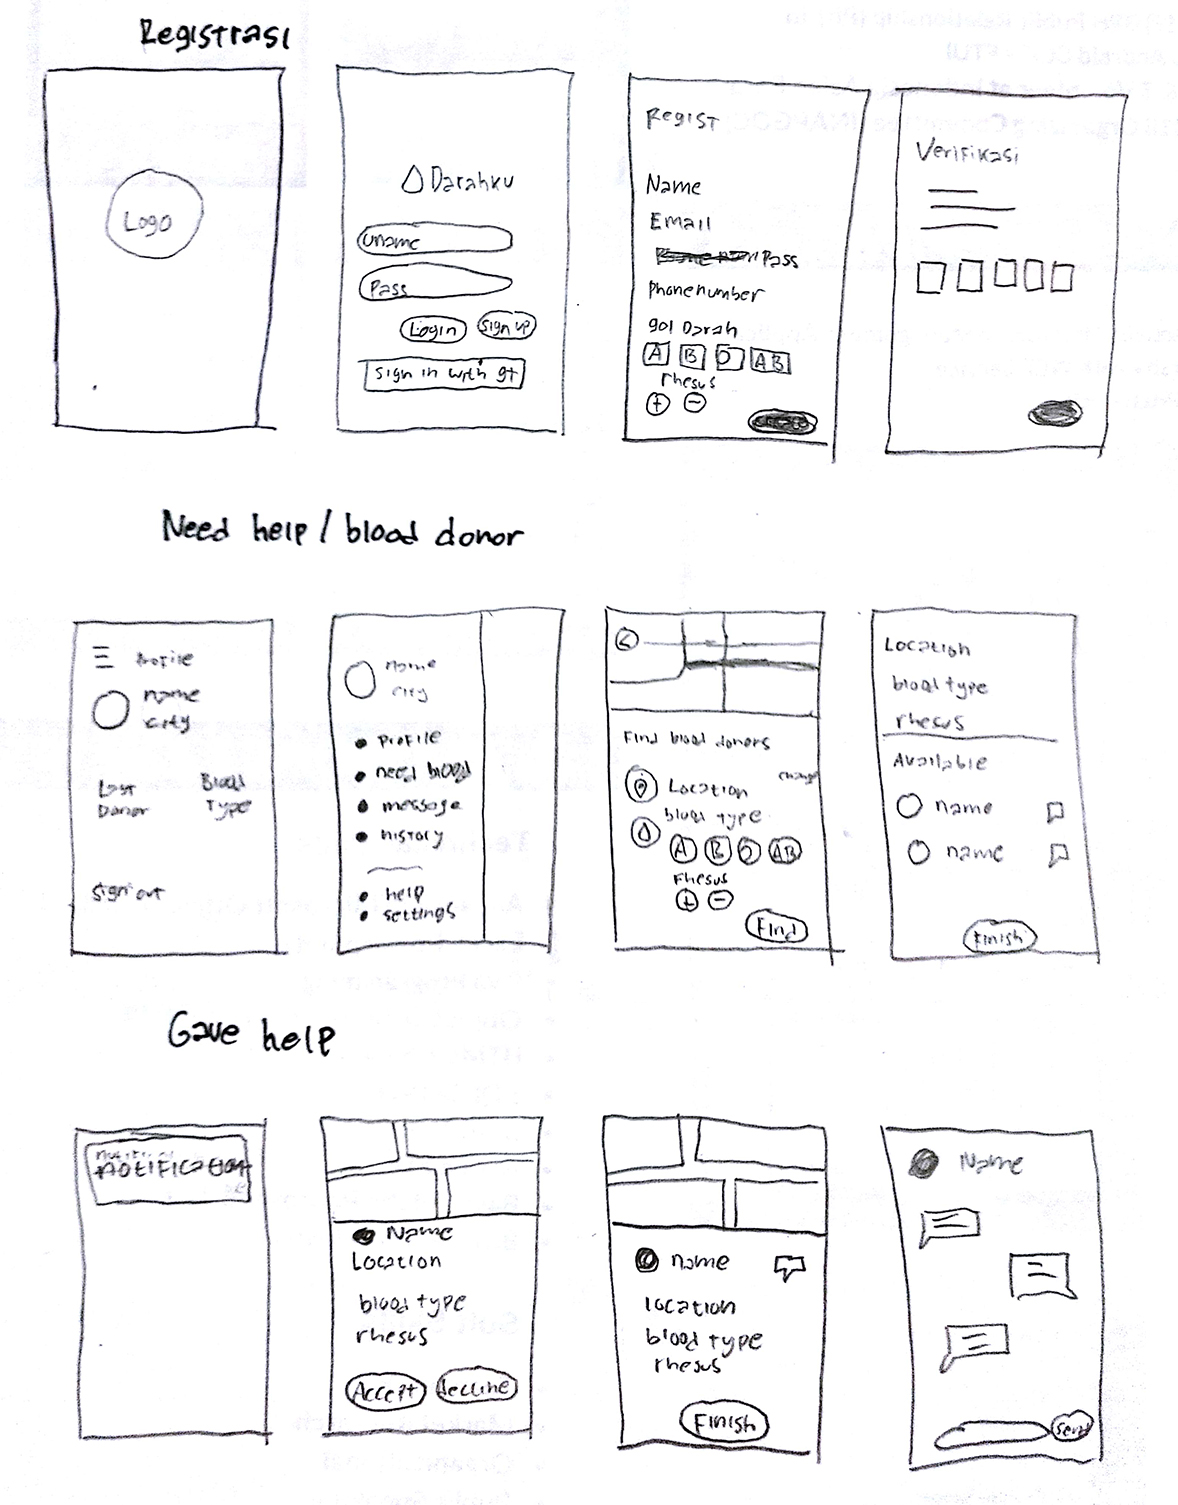 Registrasi
Logo
Darahku
Uname
Pass
Login
Sign up
Sign in with g+
Regist
Name
Email
Pass
Phonenumber
gol Darah
A B O AB
rhesus
+ −
Verifikasi
Need help / blood donor
Profile
name
city
Last
Donor
Blood
Type
Sign out
name
city
profile
need blood
message
history
help
settings
Find blood donors
Location
change
blood type
A B O AB
rhesus
+ −
Find
Location
blood type
rhesus
Available
name
name
Finish
Gave help
NOTIFICATION
Name
Location
blood type
rhesus
Accept
decline
name
location
blood type
rhesus
Finish
Name
Send